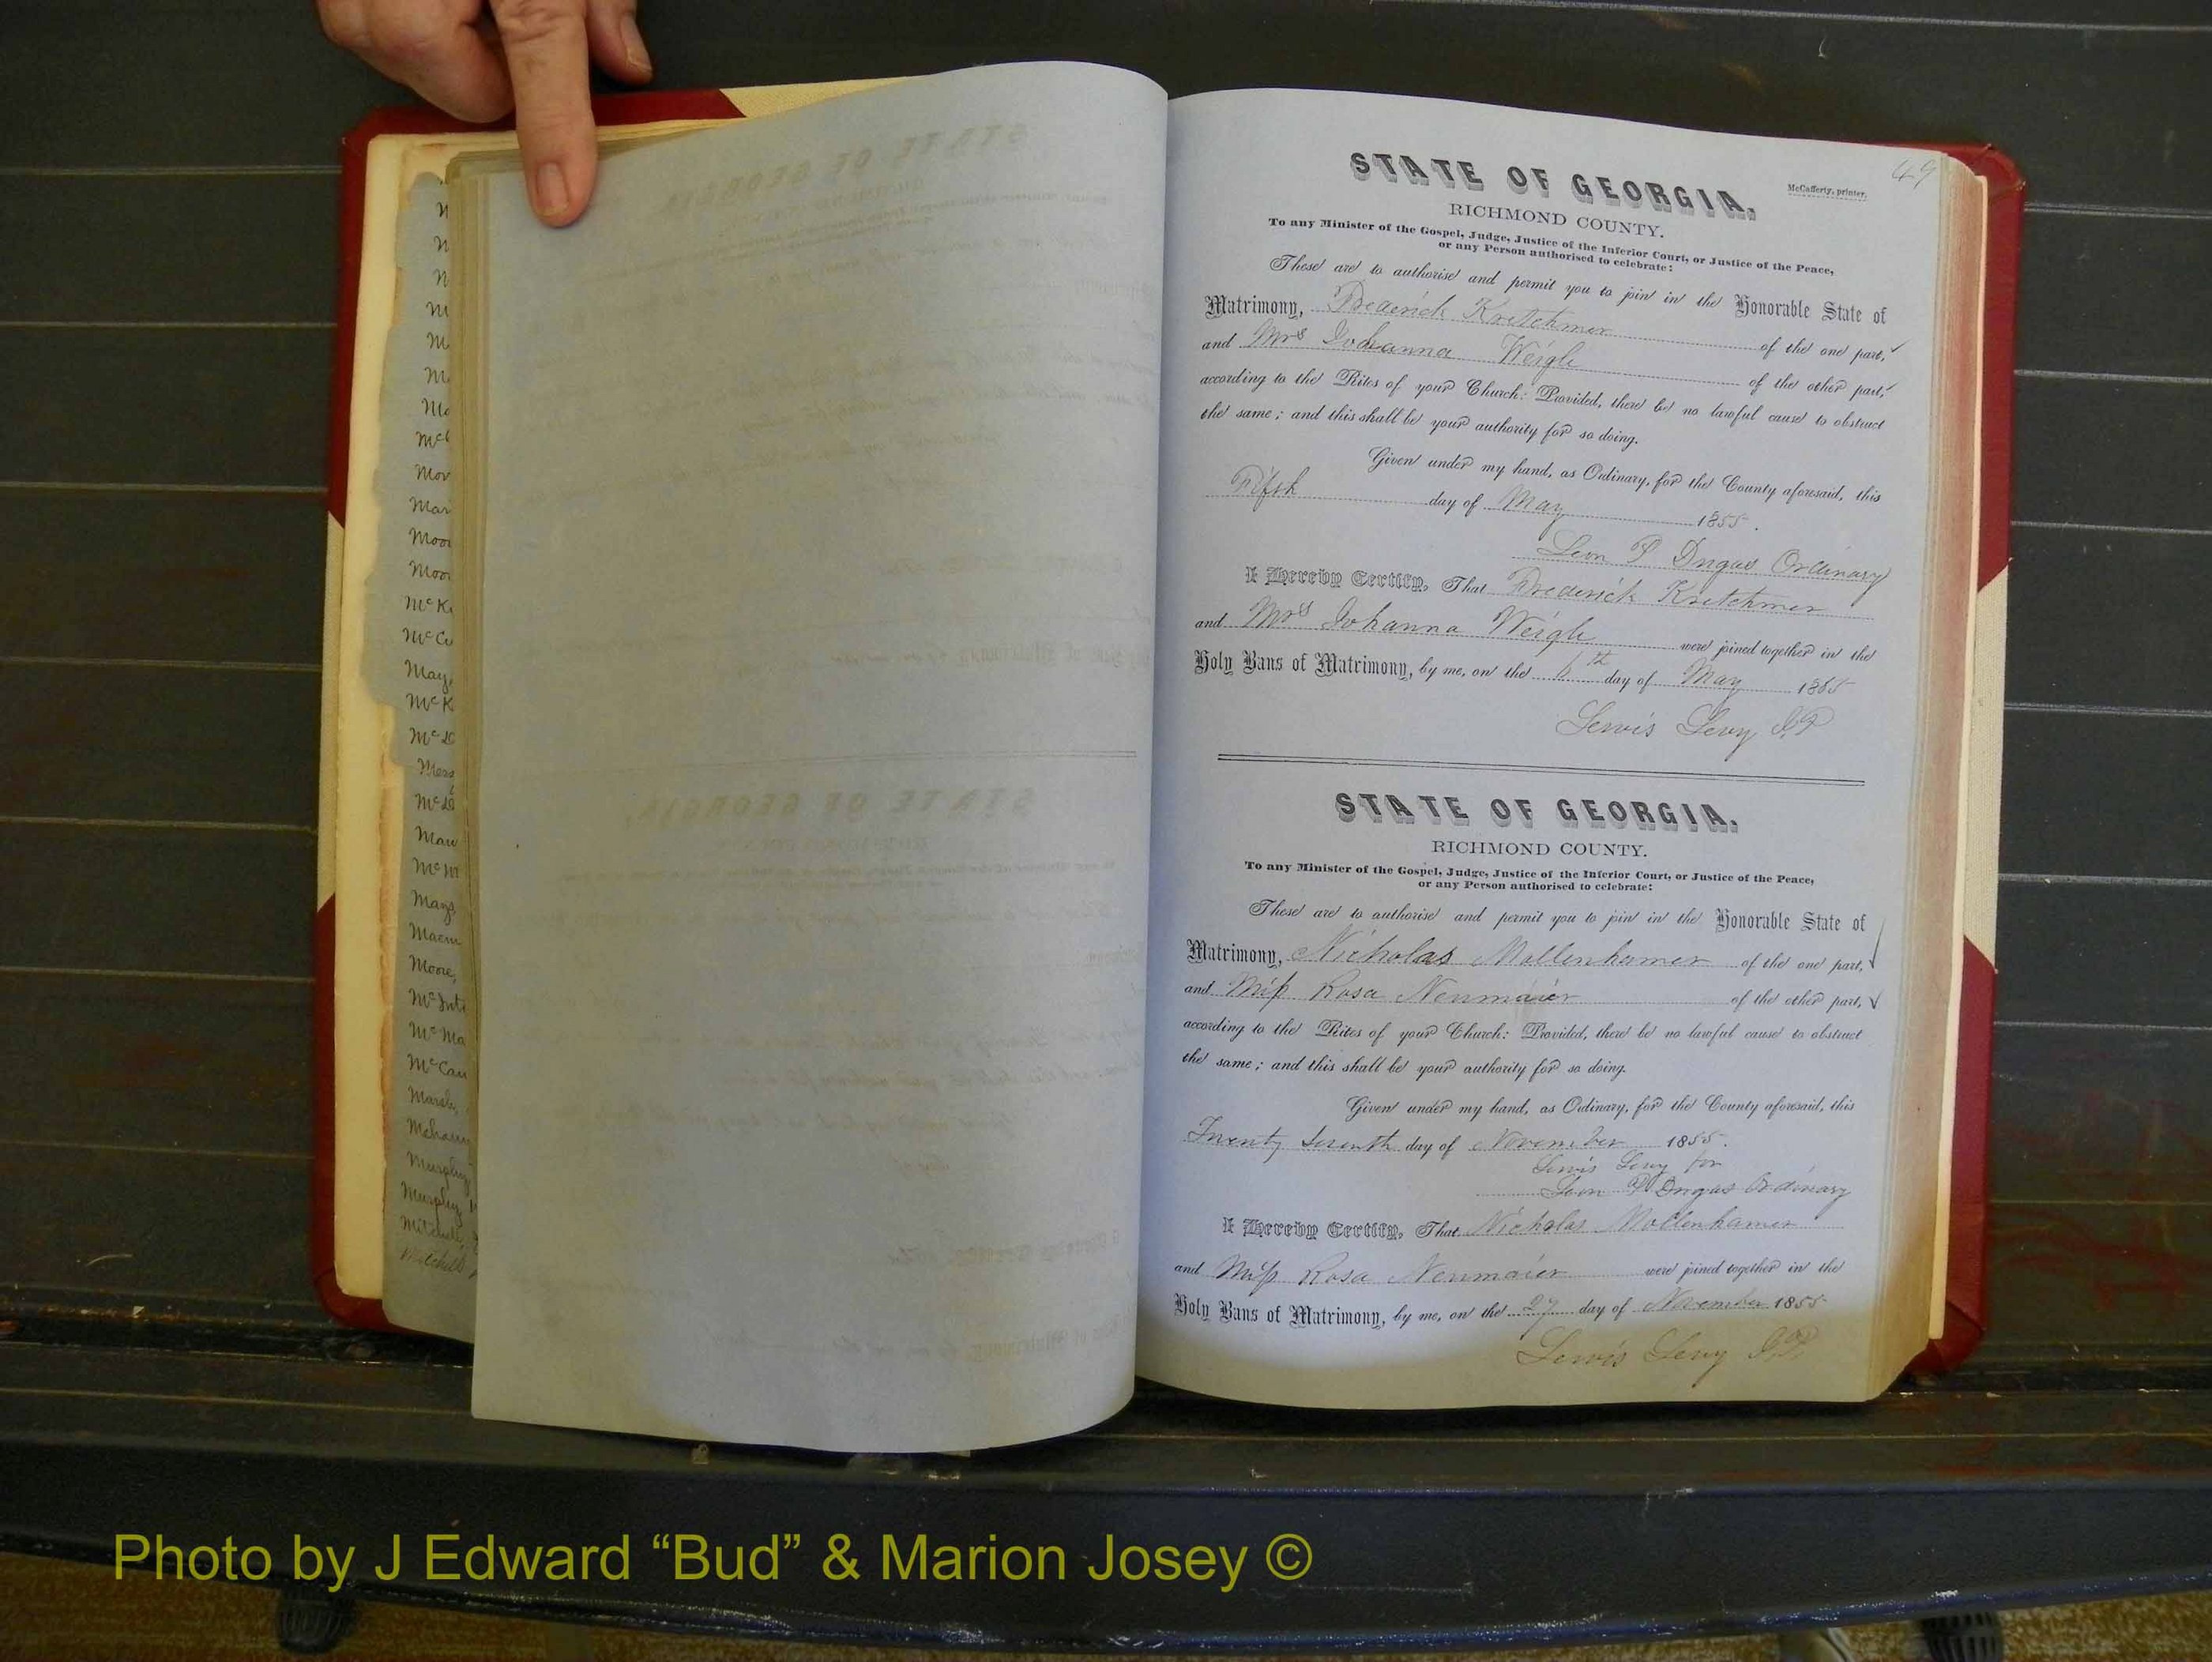 M
M
M
M
M
M
Mc
McC
Mor
Mar
Moor
Moor
McK
McCu
May
McK
McD
Mess
McD
Maw
McM
Mays
Macm
Moore,
McInt
McMa
McCan
Marsh,
Mchann
Murphy
Murphy
Mitchell
Mitchell
49
STATE OF GEORGIA.
McCafferty, printer.
RICHMOND COUNTY.
To any Minister of the Gospel, Judge, Justice of the Inferior Court, or Justice of the Peace,
or any Person authorised to celebrate:
These are to authorise and permit you to join in the Honorable State of
Matrimony, Frederick Kretchmer of the one part,
and Mrs Johanna Weigle of the other part,
according to the Rites of your Church: Provided, there be no lawful cause to obstruct
the same; and this shall be your authority for so doing.
Given under my hand, as Ordinary, for the County aforesaid, this
Fifth day of May 1855.
Leon P Dugas Ordinary
I Hereby Certify, That Frederick Kretchmer
and Mrs Johanna Weigle were joined together in the
Holy Bans of Matrimony, by me, on the 6th day of May 1855
Lewis Levy J.P
STATE OF GEORGIA.
RICHMOND COUNTY.
To any Minister of the Gospel, Judge, Justice of the Inferior Court, or Justice of the Peace,
or any Person authorised to celebrate:
These are to authorise and permit you to join in the Honorable State of
Matrimony, Nicholas Mollenhamer of the one part,
and Miss Rosa Neumaier of the other part,
according to the Rites of your Church: Provided, there be no lawful cause to obstruct
the same; and this shall be your authority for so doing.
Given under my hand, as Ordinary, for the County aforesaid, this
Twenty Seventh day of November 1855.
Lewis Levy for
Leon P Dugas Ordinary
I Hereby Certify, That Nicholas Mollenhamer
and Miss Rosa Neumaier were joined together in the
Holy Bans of Matrimony, by me, on the 27 day of November 1855
Lewis Levy J.P.
Photo by J Edward “Bud” & Marion Josey ©